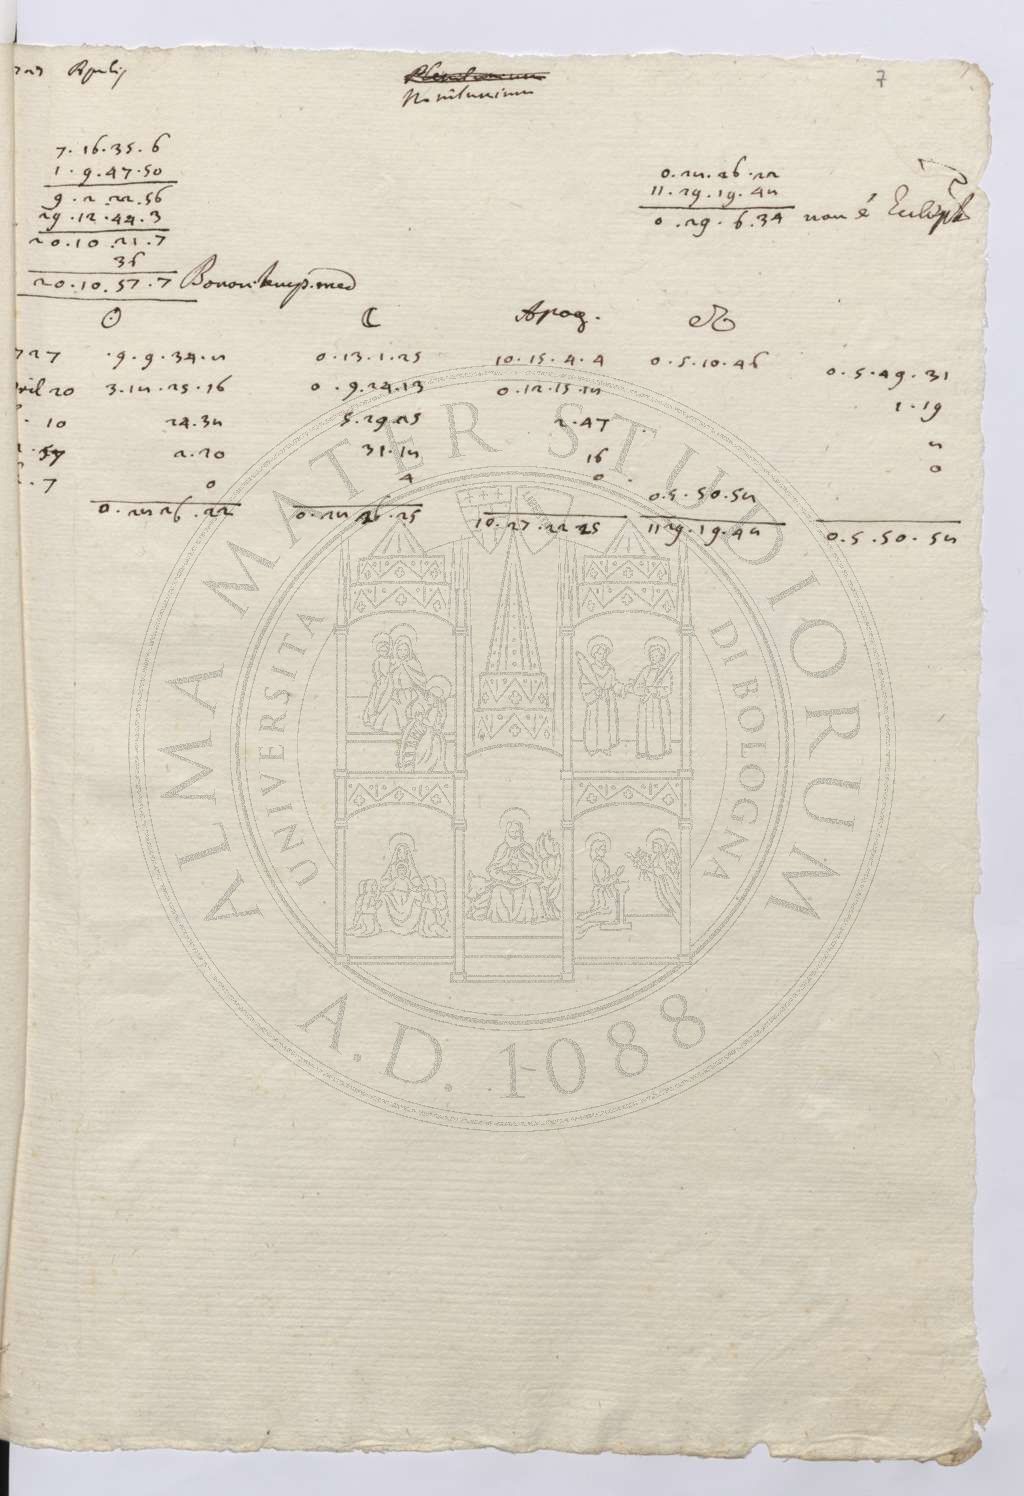 Aprilis Plenilunium 7
Novilunium
7.16.35.6
1.9.47.50
9.2.22.56
29.12.44.3
20.10.21.7
36
20.10.57.7 Bonon. temp. med
0.28.26.22
11.29.19.48
0.29.6.34 non è
☉ ☾ Apog. ☊
727 9.9.34.8 0.13.1.25 10.15.4.4 0.5.10.46 0.5.49.31
ril 20 3.18.25.16 0.9.24.13 0.12.15.18 1.19
10 24.38 5.29.25 2.47 8
57 2.20 31.18 16 0
7 0 4 0 0.5.50.58
0.28.26.22 0.28.26.25 10.27.22.25 11.29.19.48 0.5.50.58
ALMA MATER STUDIORUM
UNIVERSITÀ DI BOLOGNA
A.D. 1088